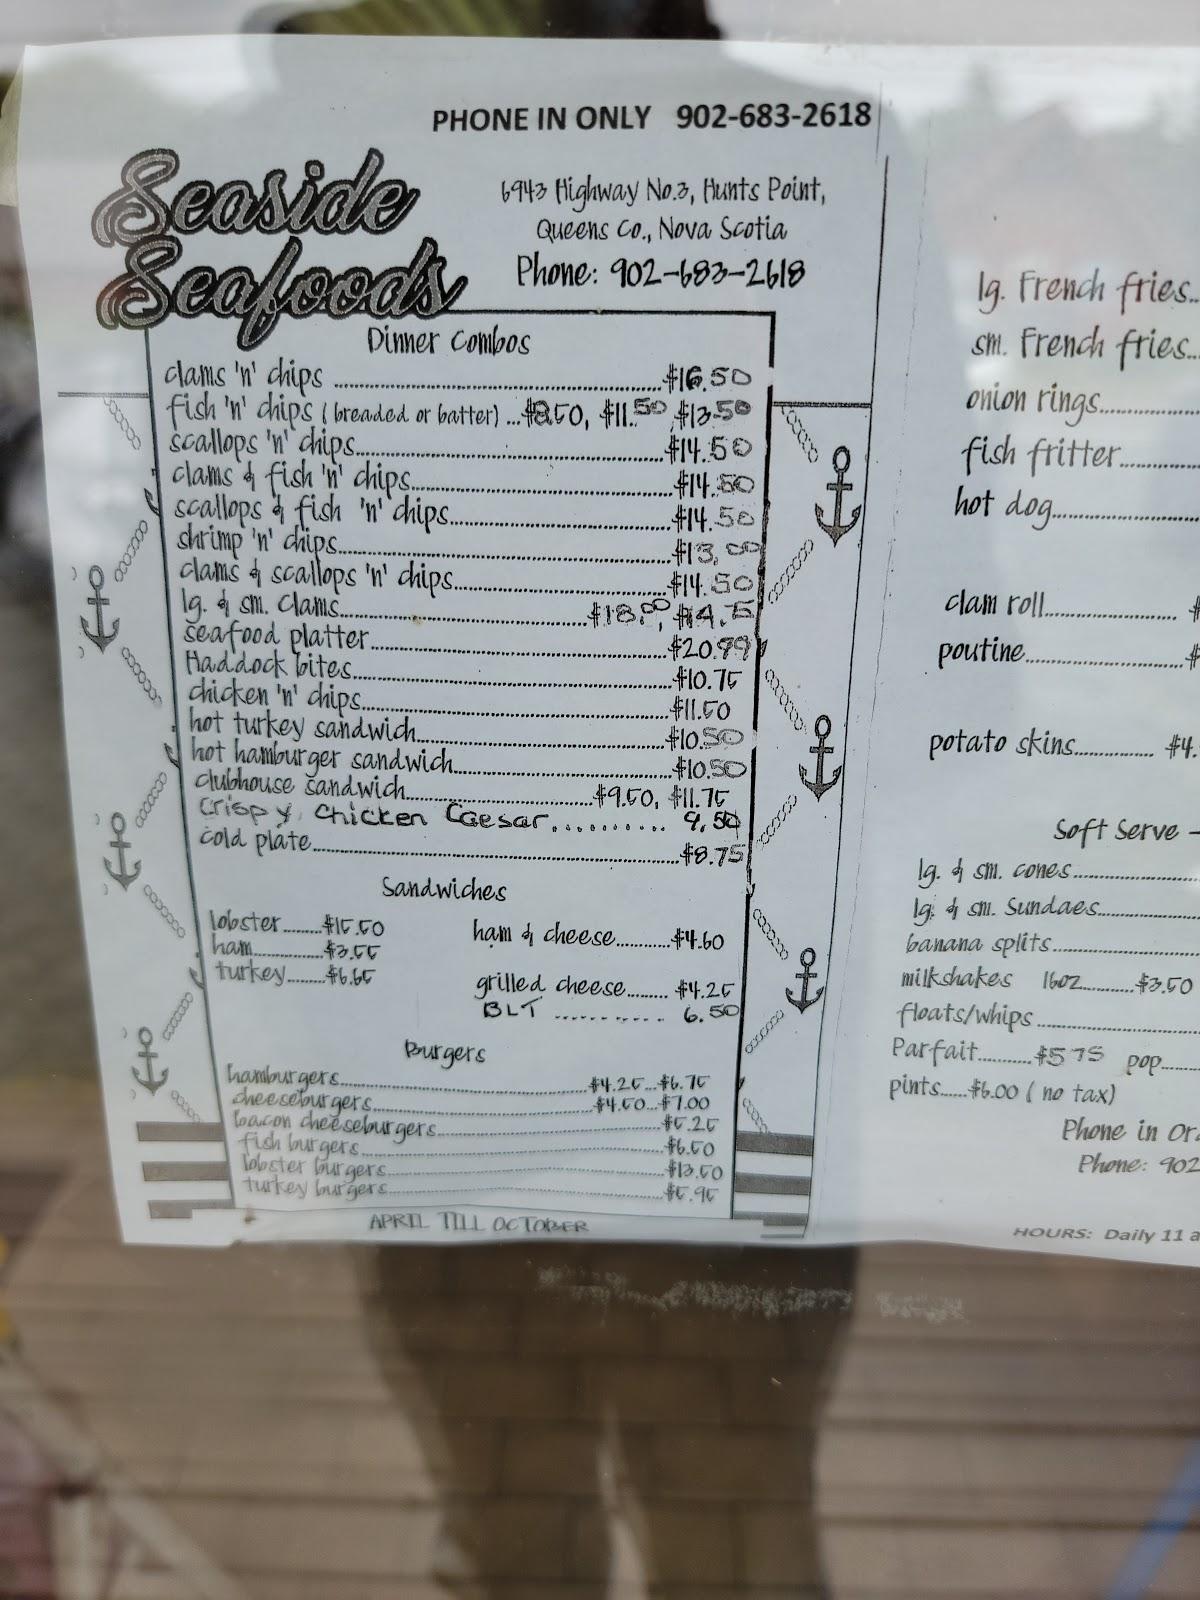 PHONE IN ONLY 902-683-2618
Seaside
Seafoods
6943 Highway No.3, Hunts Point,
Queens Co., Nova Scotia
Phone: 902-683-2618
Dinner Combos
clams 'n' chips ........ $16.50
fish 'n' chips (breaded or batter) ... $8.50, $11.50 $13.50
scallops 'n' chips ........ $14.50
clams & fish 'n' chips ........ $14.50
scallops & fish 'n' chips ........ $14.50
shrimp 'n' chips ........ $13.00
clams & scallops 'n' chips ........ $14.50
lg. & sm. Clams ........ $18.00,
seafood platter ........ $20.99
Haddock bites ........ $10.75
chicken 'n' chips ........ $11.50
hot turkey sandwich ........ $10.50
hot hamburger sandwich ........ $10.50
clubhouse sandwich ........ $9.50, $11.75
Crispy Chicken Caesar .......... 9.50
cold plate ........ $8.75
Sandwiches
lobster ........ $15.50
ham ........ $3.55
turkey ........ $6.65
ham & cheese ........ $4.60
grilled cheese ........ $4.25
BLT ........... 6.50
Burgers
hamburgers ........ $4.25...$6.75
cheeseburgers ........ $4.50...$7.00
bacon cheeseburgers ........ $5.25
fish burgers ........ $6.50
lobster burgers ........ $13.50
turkey burgers ........ $5.95
APRIL TILL OCTOBER
lg. French fries...
sm. French fries...
onion rings........
fish fritter........
hot dog........
clam roll........ $
poutine........ $
potato skins........ $4.
Soft Serve -
lg. & sm. cones........
lg. & sm. Sundaes........
banana splits........
milkshakes 16oz........$3.50
floats/whips ........
Parfait........$5.75 pop........
pints......$6.00 (no tax)
Phone in Or
Phone: 902
HOURS: Daily 11 a